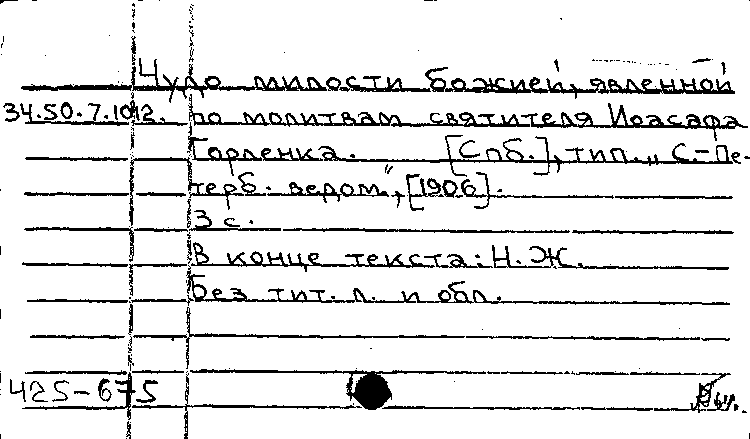 Чудо милости божией, явленной
34.50.7.1012. по молитвам святителя Иоасафа
Горленка. [Спб.], тип. „С.-Пе-
терб. ведом.“, [1906].
3 с.
В конце текста: Н. Ж.
Без тит. л. и обл.
425-675